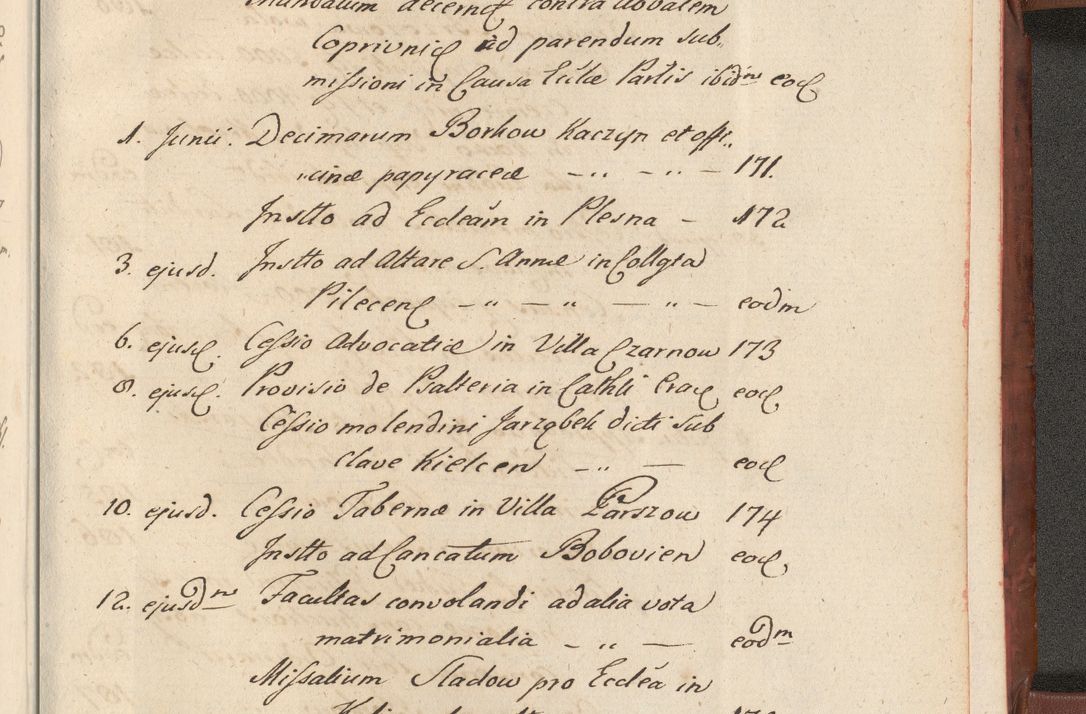 Mandatum decernens contra Abbatem
Coprivnic ad parendum sub„
missioni in Causa Ecclae Partis ibidm eod
1. Junii. Decimarum Borkow Kaczyn et offi„
„cinæ papyraceæ – „ – „ – 171.
Instto ad Ecclesiam in Plesna – 172
3. ejusd. Instto ad Altare S. Annæ in Collgta
Pilecen – „ – „ – „ – eodm
6. ejusd. Cessio Advocatiæ in Villa Czarnow 173
8. ejusd. Provisio de Psalteria in Cathli Crac eod
Cessio molendini Jarząbek dicti sub
clave Kielcen – „ – eod
10. ejusd. Cessio Tabernæ in Villa Parszow 174
Instto ad Cancatum Bobovien eod
12. ejusdm Facultas convolandi ad alia vota
matrimonialia – „ – eodm
Missalium Sladow pro Ecclea in